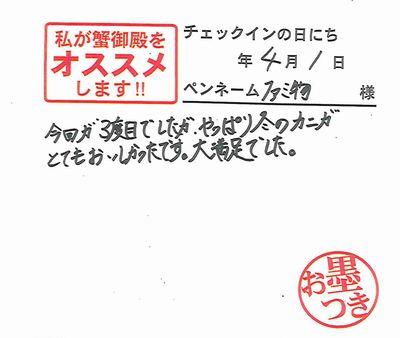 私が蟹御殿を
オススメ
します!!
チェックインの日にち
年 4月 1日
ペンネーム ファミ物 様
今回が3度目でしたが、やっぱり冬のカニが
とてもおいしかったです。大満足でした。
お墨つき